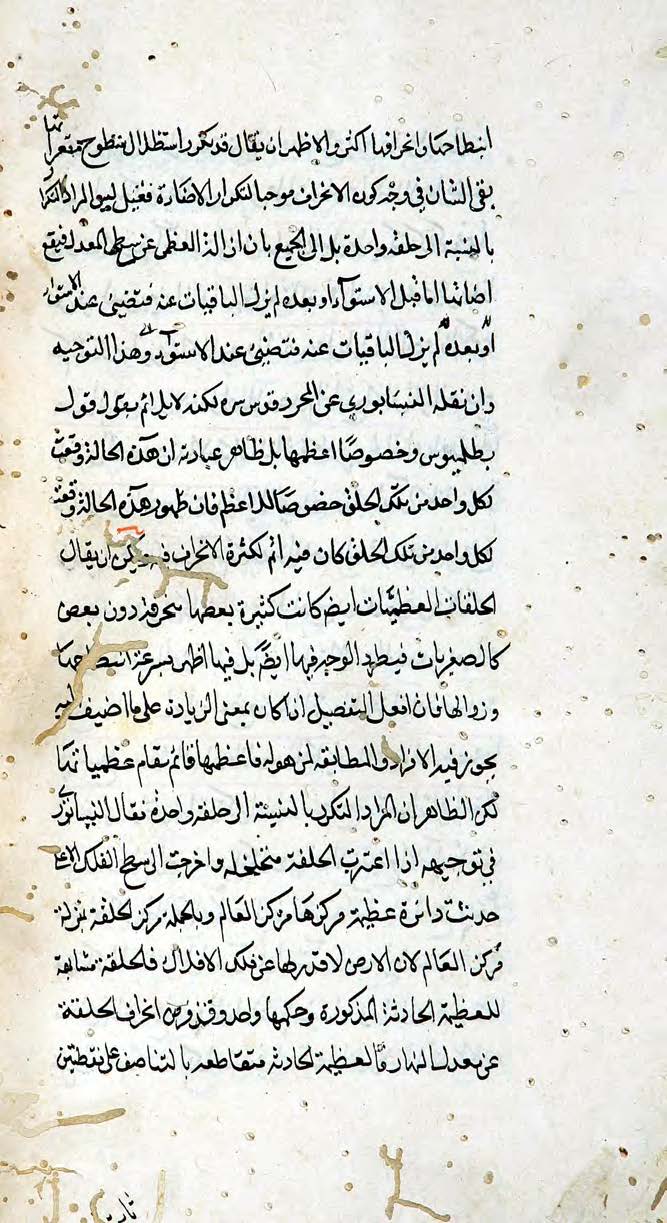 انبطاحها وانحرافها اكثر والاظهر ان يقال قد تكرر استظلال سطوح مقعراتها
بقى الشان في وجه كون الانحراف موجبا لتكرار الاضاءة فقيل ليس المراد التكرار
بالنسبة الى حلقة واحدة بل الى الجميع بان ازالة العظمى عن سطح المعدل فيقع
اضائتها اما قبل الاستوآء او بعده لم يزل الباقيات عنه فتضيئ عند الاستواء
او بعده لم يزل الباقيات عنه فتضيئ عند الاستواء وهذا التوجيه
وان نقله النيسابوري عن المحرر قدس سره لكنه لا يلائم بقوله قول
بطلميوس وخصوصًا اعظمها بل ظاهر عبارته ان هذه الحالة وقعت
لكل واحد من تلك الحلق خصوصًا للاعظم فان ظهور هذه الحالة وقعته
لكل واحد من تلك الحلق كان فيه اتم لكثرة الانحراف فيه ويمكن ان يقال
الحلقات العظيمات ايضا كانت كثيرة بعضها منحرفة دون بعض
كالصغريات فيطرد الوجه فيها ايضًا بل فيها اظهر بسرعة انبطاحها
وزوالها فان افعل التفضيل اذا كان بمعنى الزيادة على ما اضيف اليه
يجوز فيه الافراد والمطابقه لمن هو له فاعظمها قائم مقام عظمياتها
لكن الظاهر ان المراد التكرر بالنسبة الى حلقة واحدة فقال النيسابوري
في توجيهه اذا اعتبرت الحلقة متخلخله واخرجت الى سطح الفلك الاعلى
حدثت دائرة عظيمة مركزها مركز العالم وبالجملة مركز الحلقة بمنزلة
مركز العالم لان الارض لا قدر لها عن فلك الافلاك فالحلقة مشابهة
للعظيمة الحادثة المذكورة وحكمها واحد وقد فرض انحراف الحلقة
عن معدل النهار فالعظيمة الحادثه متقاطعه بالتناصف على نقطتين